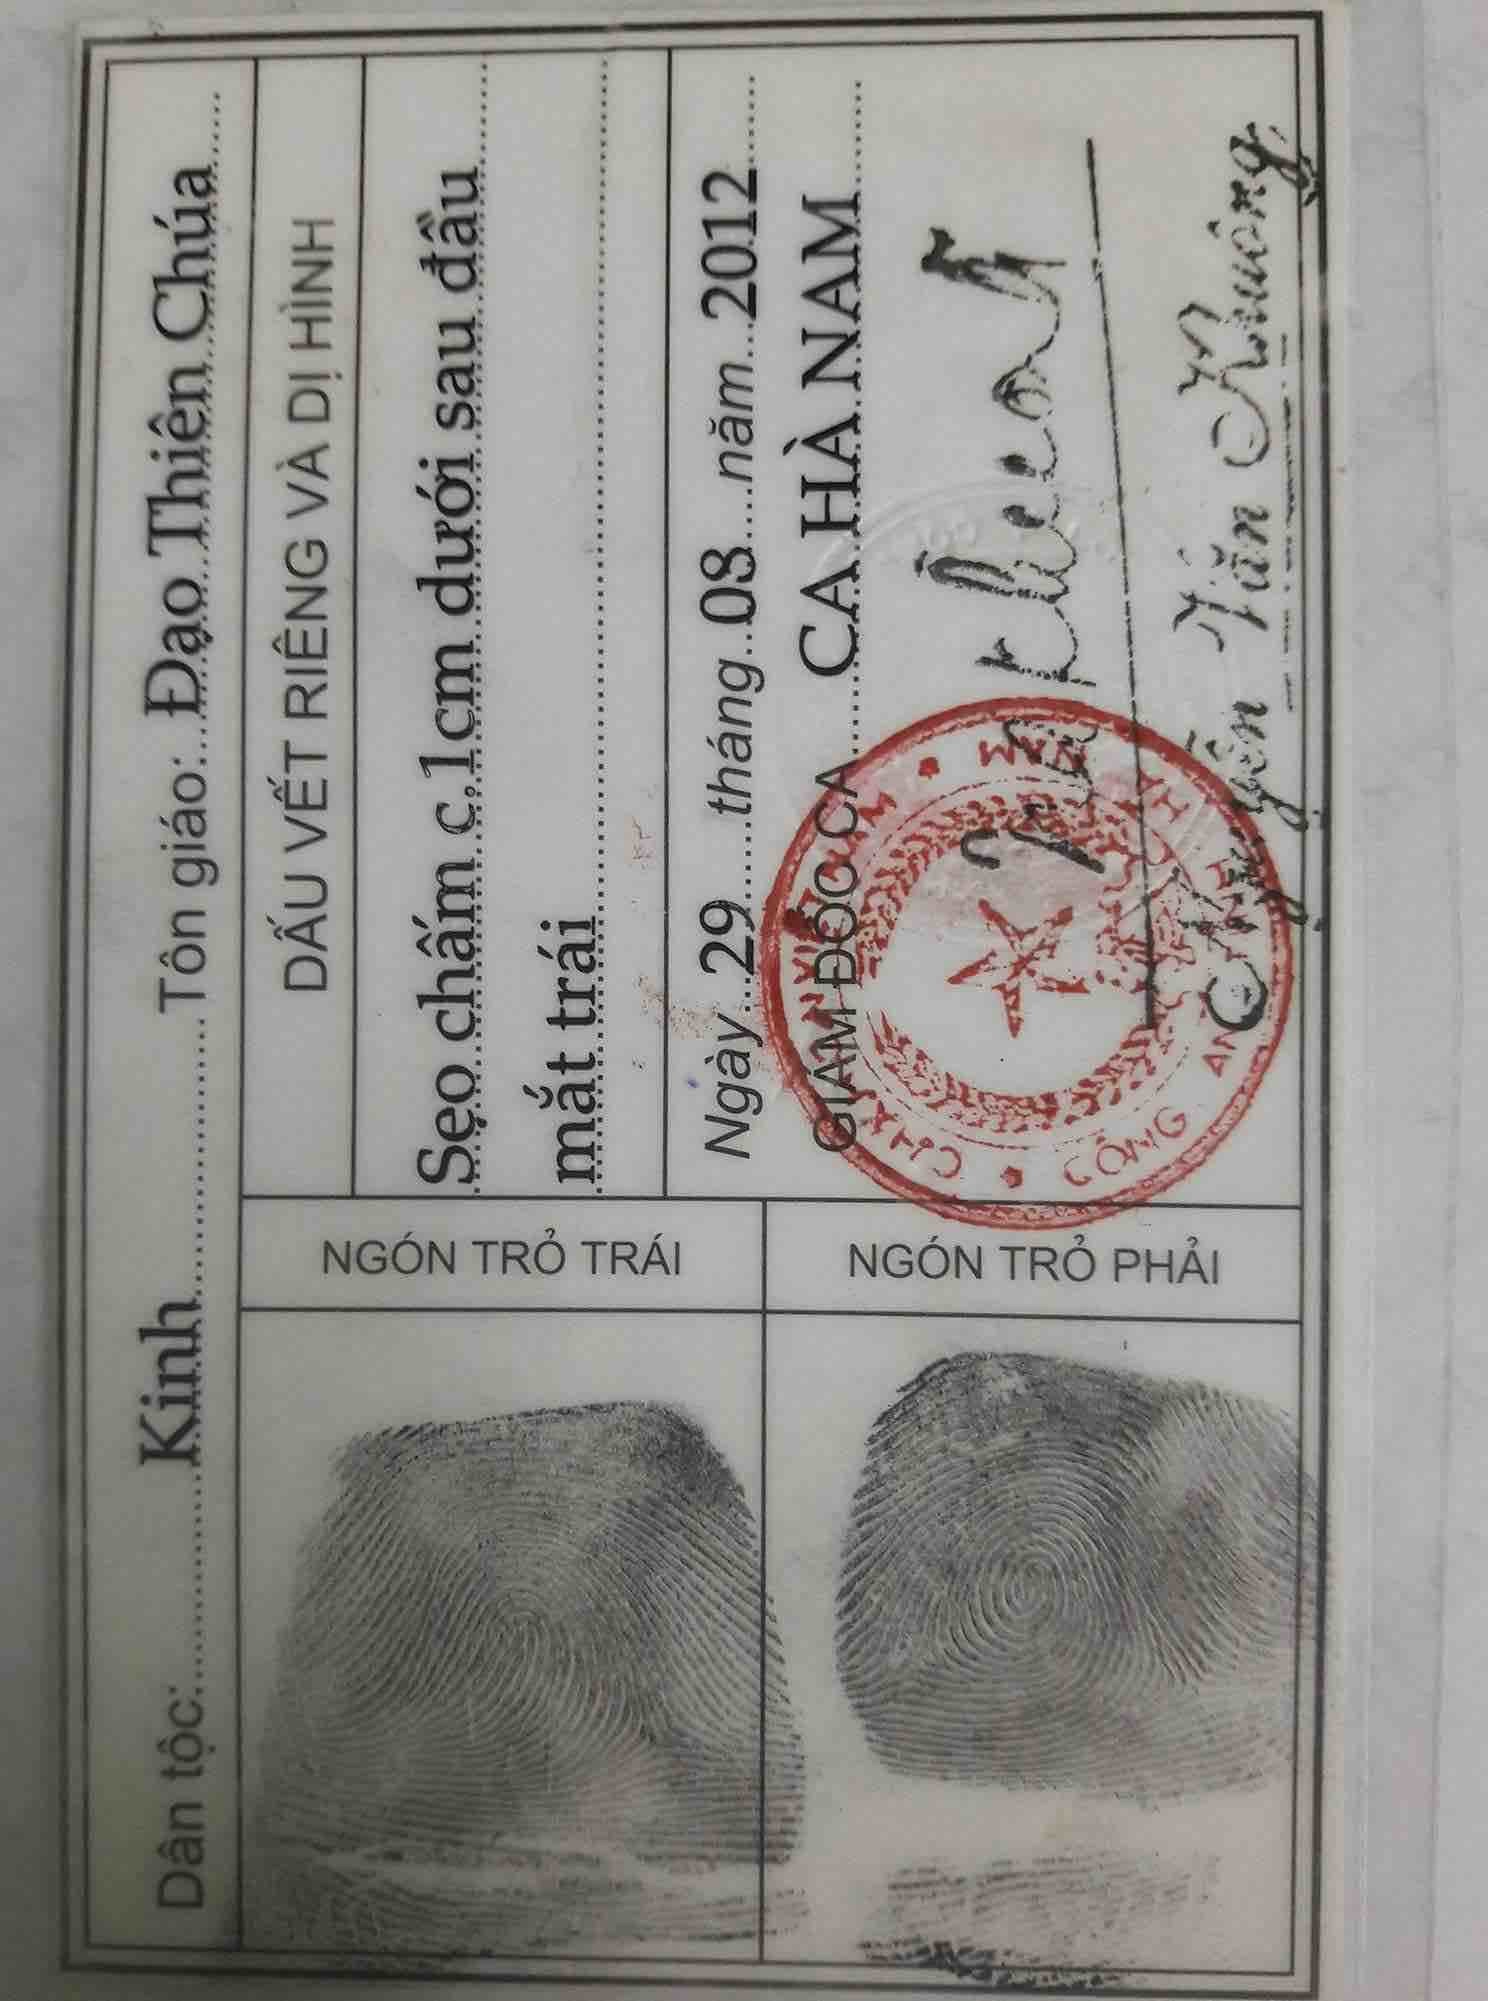 Dân tộc: Kinh Tôn giáo: Đạo Thiên Chúa
NGÓN TRỎ TRÁI
NGÓN TRỎ PHẢI
DẤU VẾT RIÊNG VÀ DỊ HÌNH
Sẹo chấm c.1cm dưới sau đầu
mắt trái
Ngày 29 tháng 08 năm 2012
GIÁM ĐỐC CA CA HÀ NAM
CÔNG AN TỈNH HÀ NAM
Nguyễn Văn Khuông